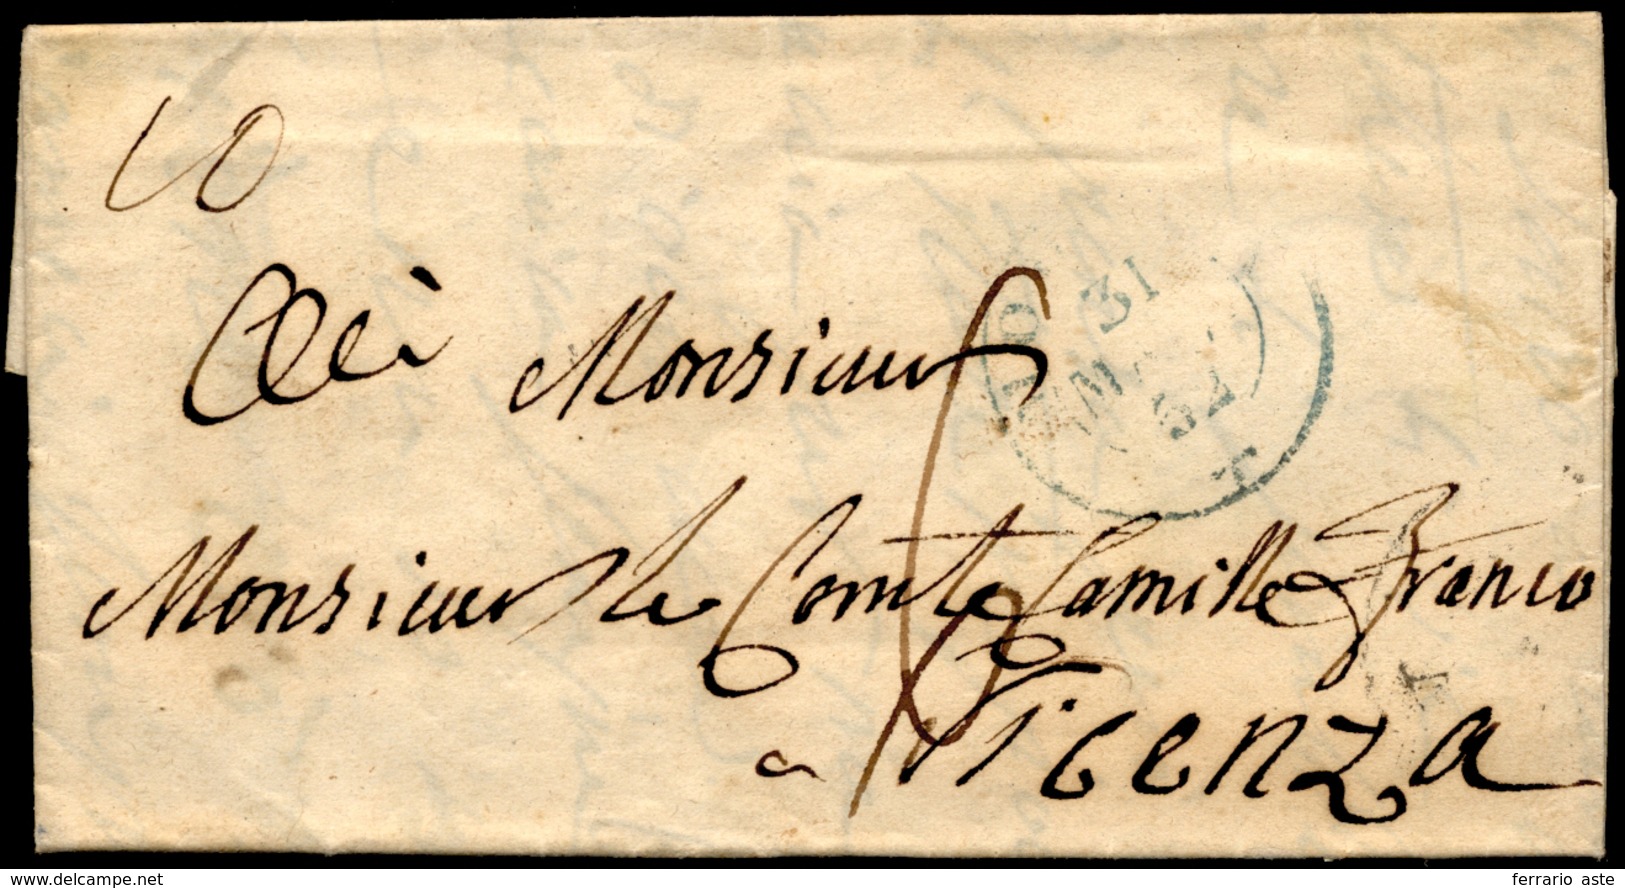 10
A Monsieur
31
52
Monsieur le Comte Camille Franco
a Vicenza
delcampe.net
ferrario aste